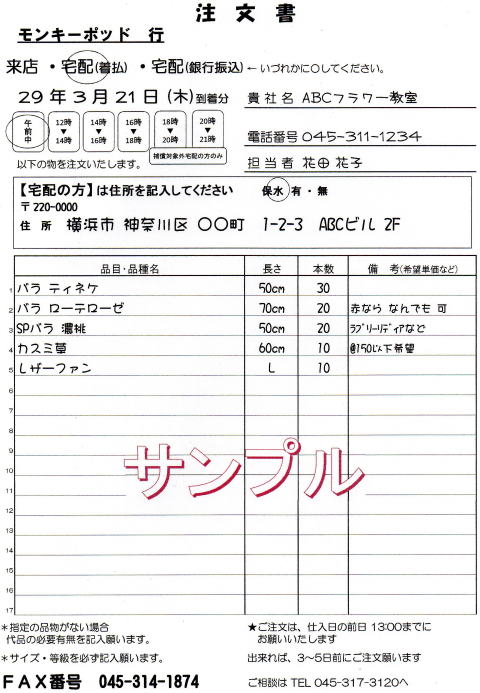 注文書
モンキーポッド 行
来店 ・ 宅配(着払) ・ 宅配(銀行振込) ←いずれかに○してください。
29年3月21日(木)到着分
貴社名 ABCフラワー教室
午前中 12時▼14時 14時▼16時 16時▼18時 18時▼20時 20時▼21時
電話番号 045-311-1234
補償対象外宅配の方のみ
以下の物を注文いたします。
担当者 花田 花子
【宅配の方】は住所を記入してください 保水 有・無
〒220-0000
住所 横浜市 神奈川区 ○○町 1-2-3 ABCビル 2F
品目・品種名 長さ 本数 備 考(希望単価など)
1 バラ ティネケ 50cm 30
2 バラ ローテローゼ 70cm 20 赤なら なんでも 可
3 SPバラ 濃桃 50cm 20 ラブリーリディアなど
4 カスミ草 60cm 10 @150以下希望
5 レザーファン L 10
6
7
8
9
10
11
12
13
14
15
16
17
サンプル
*指定の品物がない場合
代品の必要有無を記入願います。
*サイズ・等級を必ず記入願います。
★ご注文は、仕入日の前日 13:00までに
お願いいたします
出来れば、3〜5日前にご注文願います
FAX番号 045-314-1874
ご相談は TEL 045-317-3120へ